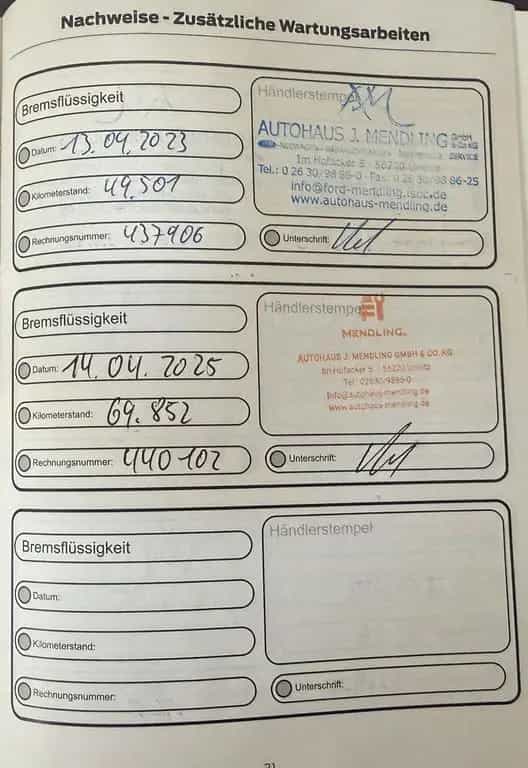 Nachweise - Zusätzliche Wartungsarbeiten
Bremsflüssigkeit
Datum: 13.04.2023
Kilometerstand: 49.501
Rechnungsnummer: 437906
Händlerstempel
AUTOHAUS J. MENDLING GmbH & Co. KG
SERVICE
Im Hofacker 5 · 56220
Tel.: 0 26 30/98 86-0 · Fax: 0 26 30/98 86-25
info@ford-mendling.de
www.autohaus-mendling.de
Unterschrift:
Bremsflüssigkeit
Datum: 14.04.2025
Kilometerstand: 69.852
Rechnungsnummer: 440102
Händlerstempel
MENDLING.
AUTOHAUS J. MENDLING GMBH & CO. KG
Im Hofacker 5 56220 Urmitz
Tel 02630/9886-0
info@autohaus-mendling.de
www.autohaus-mendling.de
Unterschrift:
Bremsflüssigkeit
Datum:
Kilometerstand:
Rechnungsnummer:
Händlerstempel
Unterschrift: